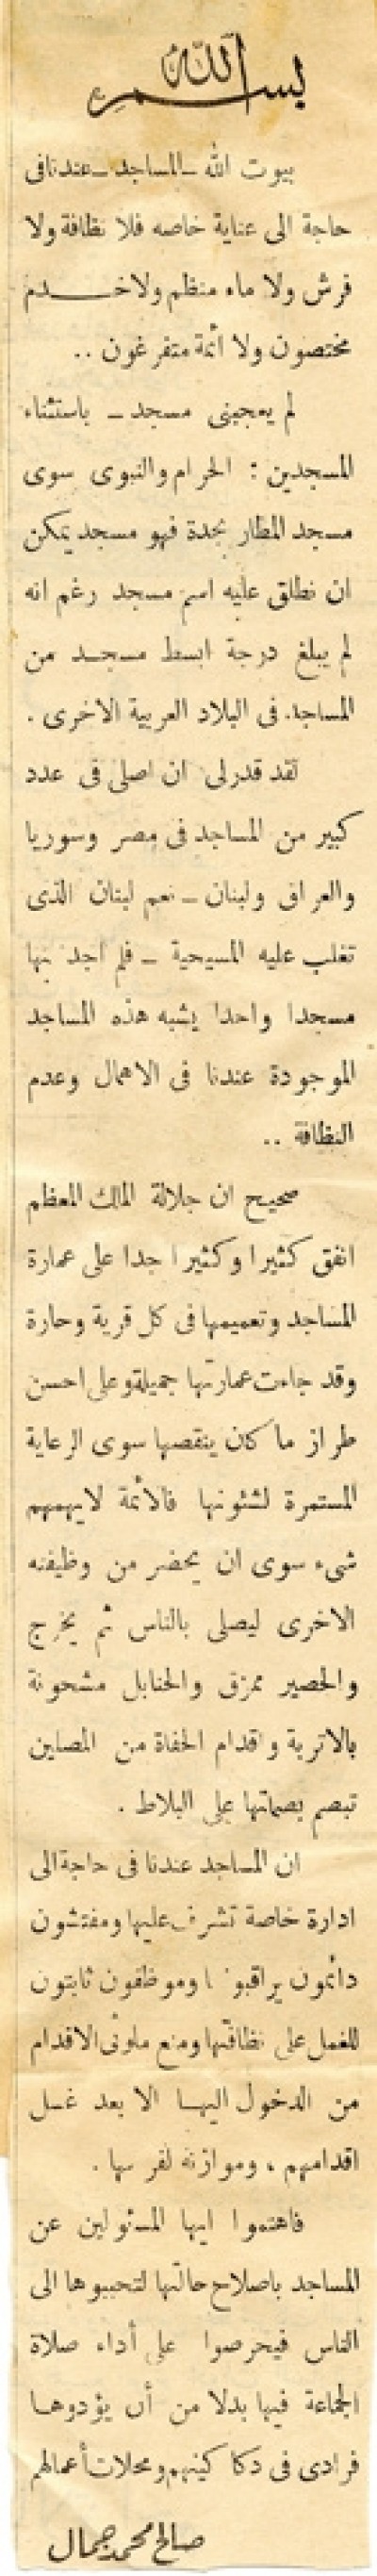 بسم الله
بيوت الله ـ المساجد ـ عندنا فى
حاجة الى عناية خاصه فلا نظافة ولا
فرش ولا ماء منظم ولا خــدم
مختصون ولا أئمة متفرغون ..
لم يعجبنى مسجد ـ باستثناء
المسجدين : الحرام والنبوى سوى
مسجد المطار بجدة فهو مسجد يمكن
ان نطلق عليه اسم مسجد رغم انه
لم يبلغ درجة ابسط مسجد من
المساجد فى البلاد العربية الاخرى .
لقد قدرلى ان اصلى فى عدد
كبير من المساجد فى مصر وسوريا
والعراق ولبنان ـ نعم لبنان الذى
تغلب عليه المسيحية ـ فلم اجد بها
مسجدا واحدا يشبه هذه المساجد
الموجودة عندنا فى الاهمال وعدم
النظافة ..
صحيح ان جلالة الملك المعظم
انفق كثيرا وكثيرا جدا على عمارة
المساجد وتعميمها فى كل قرية وحارة
وقد جاءت عمارتها جميلة وعلى احسن
طراز ما كان ينقصها سوى الرعاية
المستمرة لشئونها فالأئمة لايهمهم
شىء سوى ان يحضر من وظيفته
الاخرى ليصلى بالناس ثم يخرج
والحصير ممزق والحنابل مشحونة
بالاتربة واقدام الحفاة من المصلين
تبصم بصماتها على البلاط .
ان المساجد عندنا فى حاجة الى
ادارة خاصة تشرف عليها ومفتشون
دائمون يراقبونها وموظفون ثابتون
للعمل على نظافتها ومنع ملوثى الاقدام
من الدخول اليهــا الا بعد غسل
اقدامهم ، وموازنة لفرشها .
فاهتموا ايها المسئولين عن
المساجد باصلاح حالتها لتحببوها الى
الناس فيحرصوا على أداء صلاة
الجماعة فيها بدلا من أن يؤدوهــا
فرادى فى دكاكينهم ومحلات أعمالهم
صالح محمد جمال